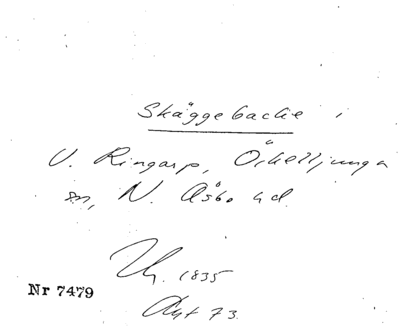 Skäggebacke i
V. Ringarp, Örkelljunga
sn, N. Åsbo hd.
1835
Nr 7479
Akt 73